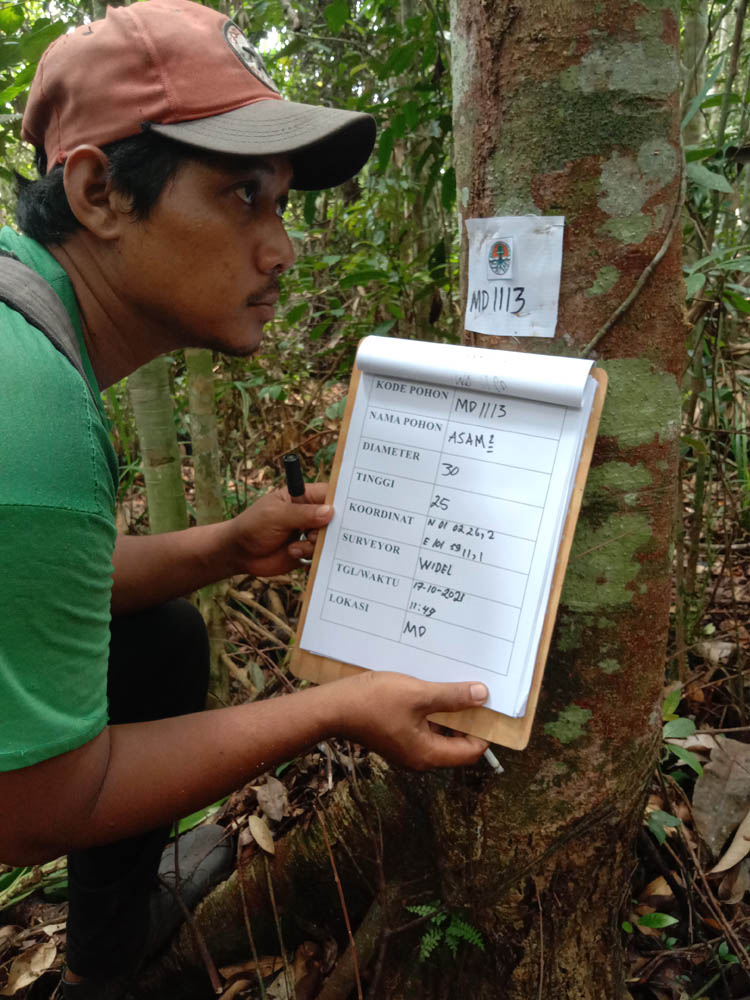 MD1113
KODE POHON MD1113
NAMA POHON ASAM²
DIAMETER 30
TINGGI 25
KOORDINAT N 01 02 26,2
E 101 59 11,1
SURVEYOR WIDEL
TGL/WAKTU 17-10-2021
11:49
LOKASI MD